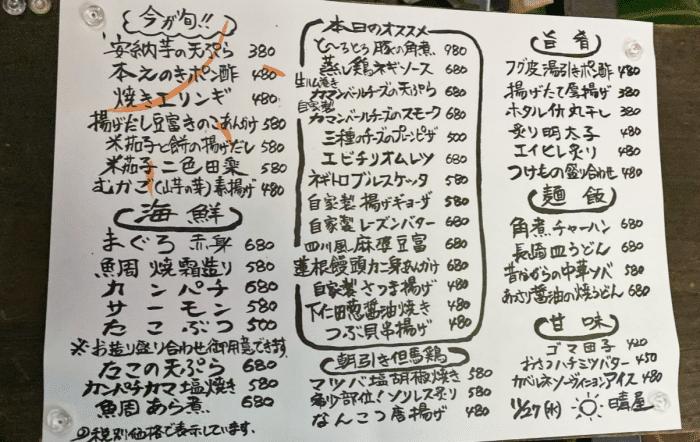 今が旬!!
安納芋の天ぷら 380
本えのきポン酢 480
焼きエリンギ 480
揚げだし豆富きのこあんかけ 580
米茄子と餅の揚げだし 580
米茄子二色田楽 580
むかご(山芋の芽)素揚げ 480
海鮮
まぐろ 赤身 680
魚周 焼霜造り 580
カンパチ 680
サーモン 580
たこぶつ 500
※お造り盛り合わせ御用意できます。
たこの天ぷら 680
カンパチカマ塩焼き 580
魚周あら煮。 680
◎税別価格で表示しています。
本日のオススメ
と〜ろとろ 豚の角煮 980
蒸し鶏ネギソース 680
カマンベールチーズの天ぷら 680
自家製
カマンベールチーズのスモーク 680
三種のチーズのプーンピザ 500
エビチリオムレツ 680
ネギトロブルスケッタ 580
自家製 揚げギョーザ 580
自家製 レーズンバター 680
四川風麻婆豆富 680
蓮根饅頭カニ身あんかけ 480
自家製さつま揚げ 480
下仁田葱醤油焼き 480
つぶ貝串揚げ 480
朝引き但馬鶏
マツバ塩胡椒焼き 580
希少部位!ソリレス炙り 580
なんこつ唐揚げ 480
旨肴
フグ皮湯引きポン酢 480
揚げたて厚揚げ 380
ホタルイカ丸干し 380
炙り明太子 480
エイヒレ炙り 480
つけもの盛り合わせ 480
麺飯
角煮チャーハン 680
長崎皿うどん 680
昔ながらの中華ソバ 580
あさり醤油の焼うどん 680
甘味
ゴマ団子 420
おさつハチミツバター 450
カベルネソーヴィニョンアイス 480
11/27(水) 晴屋